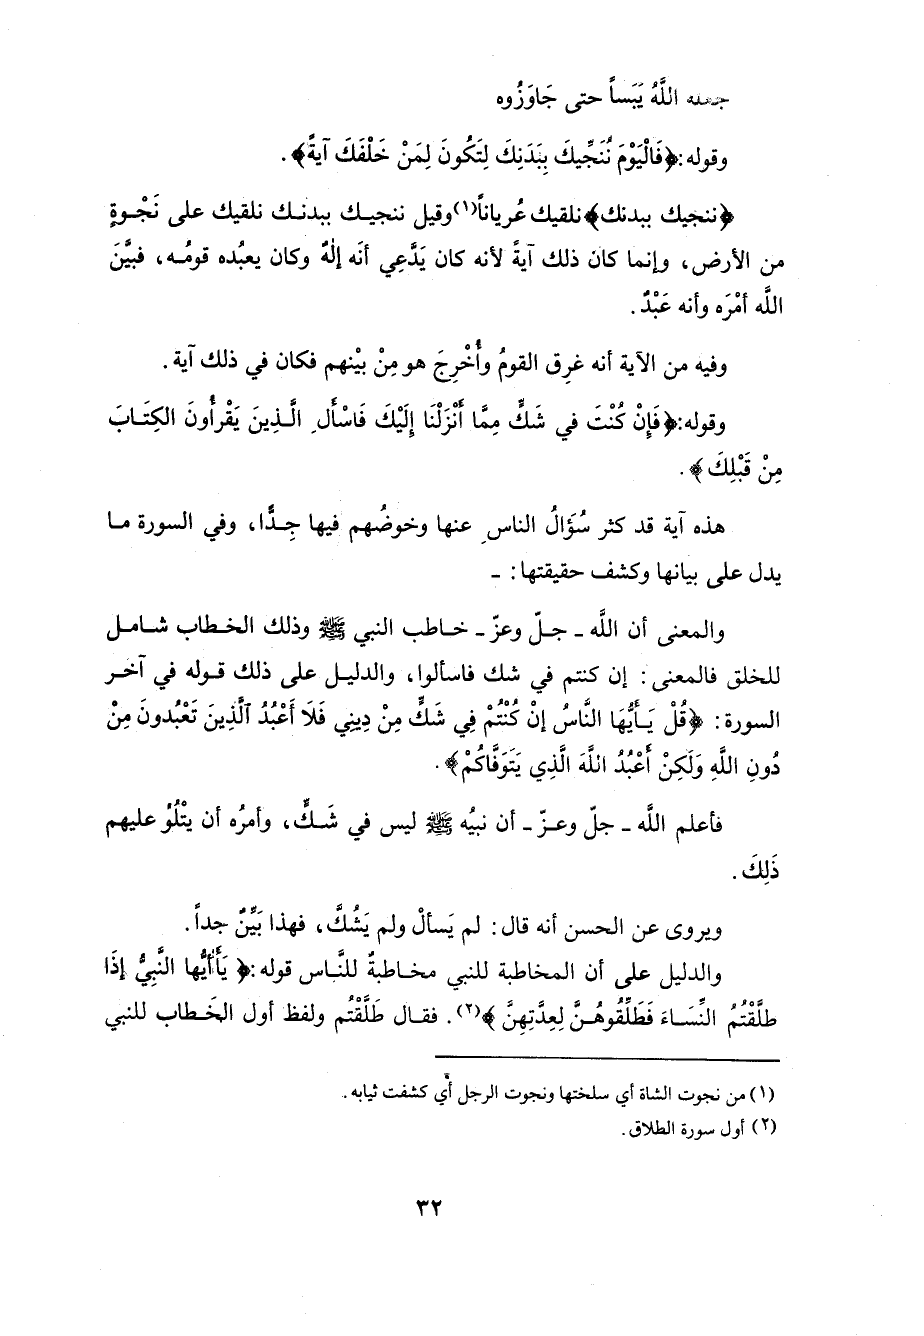 جعله اللَّهُ يَبَساً حتى جَاوَزُوه
وقوله:﴿فَالْيَوْمَ نُنَجِّيكَ بِبَدَنِكَ لِتَكُونَ لِمَنْ خَلْفَكَ آيةً﴾.
﴿ننجيك ببدنك﴾نلقيك عُرياناً(١)وقيل ننجيك ببدنك نلقيك على نَجْوةٍ
من الأرض، وإنما كان ذلك آيةً لأنه كان يَدَّعِي أنَه إلٰهٌ وكان يعبُده قومُه، فبيَّنَ
الله أمْرَه وأنه عَبْدٌ.
وفيه من الآية أنه غرِق القومُ وأُخْرِجَ هو مِنْ بيْنهم فكان في ذلك آية.
وقوله:﴿فَإِنْ كُنْتَ في شَكٍّ مِمَّا أَنْزَلْنَا إِلَيْكَ فَاسْأَلِ الَّذِينَ يَقْرأُونَ الكِتَابَ
مِنْ قَبْلِكَ﴾.
هذه آية قد كثر سُؤَالُ الناسِ عنها وخوضُهم فيها جِدًّا، وفي السورة ما
يدل على بيانها وكشف حقيقتها: -
والمعنى أن اللَّه - جلّ وعزّ - خاطب النبي ﷺ وذلك الخطاب شامل
للخلق فالمعنى: إن كنتم في شك فاسألوا، والدليل على ذلك قوله في آخر
السورة: ﴿قُلْ يَأَيُّهَا النَّاسُ إنْ كُنْتُمْ فِي شَكٍّ مِنْ دِينِي فَلَا أَعْبُدُ ٱلَّذِينَ تَعْبُدونَ مِنْ
دُونِ اللَّهِ وَلَكِنْ أَعْبُدُ اللهَ الَّذِي يَتَوَفَّاكُمْ﴾.
فأعلم اللَّه - جلّ وعزّ - أن نبيُه ﷺ ليس في شَكٍّ، وأمرُه أن يتْلُوَ عليهم
ذَلِكَ.
ويروى عن الحسن أنه قال: لم يَسألْ ولم يَشُكَّ، فهذا بَيِّنٌ جداً.
والدليل على أن المخاطبة للنبي مخاطبةٌ للنَّاس قوله:﴿يَأَأَيُّها النَّبِيُّ إذَا
طلَّقْتُمُ النِّسَاءَ فَطَلِّقُوهُنَّ لِعِدَّتِهِنَّ﴾(٢). فقال طَلَّقْتُم ولفظ أول الخَطاب للنبي
(١) من نجوت الشاة أي سلختها ونجوت الرجل أي كشفت ثيابه.
(٢) أول سورة الطلاق.
٣٢